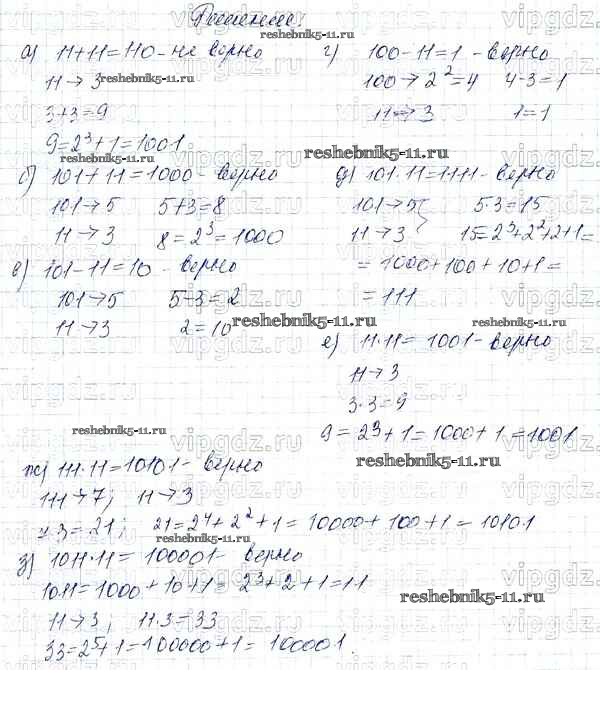 Решение:
а) 11+11=110 - не верно
11→3
3+3=9
9=2³+1=1001
б) 101+11=1000 - верно
101→5 5+3=8
11→3 8=2³=1000
в) 101-11=10 - верно
101→5 5-3=2
11→3 2=10
г) 100-11=1 - верно
100→2²=4 4-3=1
11→3 1=1
д) 101·11=1111 - верно
101→5 5·3=15
11→3 15=2³+2²+2+1=
=1000+100+10+1=
=111
е) 11·11=1001 - верно
11→3
3·3=9
9=2³+1=1000+1=1001
ж) 111·11=10101 - верно
111→7; 11→3
·3=21; 21=2⁴+2²+1=10000+100+1=10101
з) 1011·11=100001 - верно
1011=1000+10+1=2³+2+1=11
11→3; 11·3=33
33=2⁵+1=100000+1=100001.
reshebnik5-11.ru
reshebnik5-11.ru
reshebnik5-11.ru
reshebnik5-11.ru
reshebnik5-11.ru
reshebnik5-11.ru
reshebnik5-11.ru
reshebnik5-11.ru
reshebnik5-11.ru
vipgdz.ru